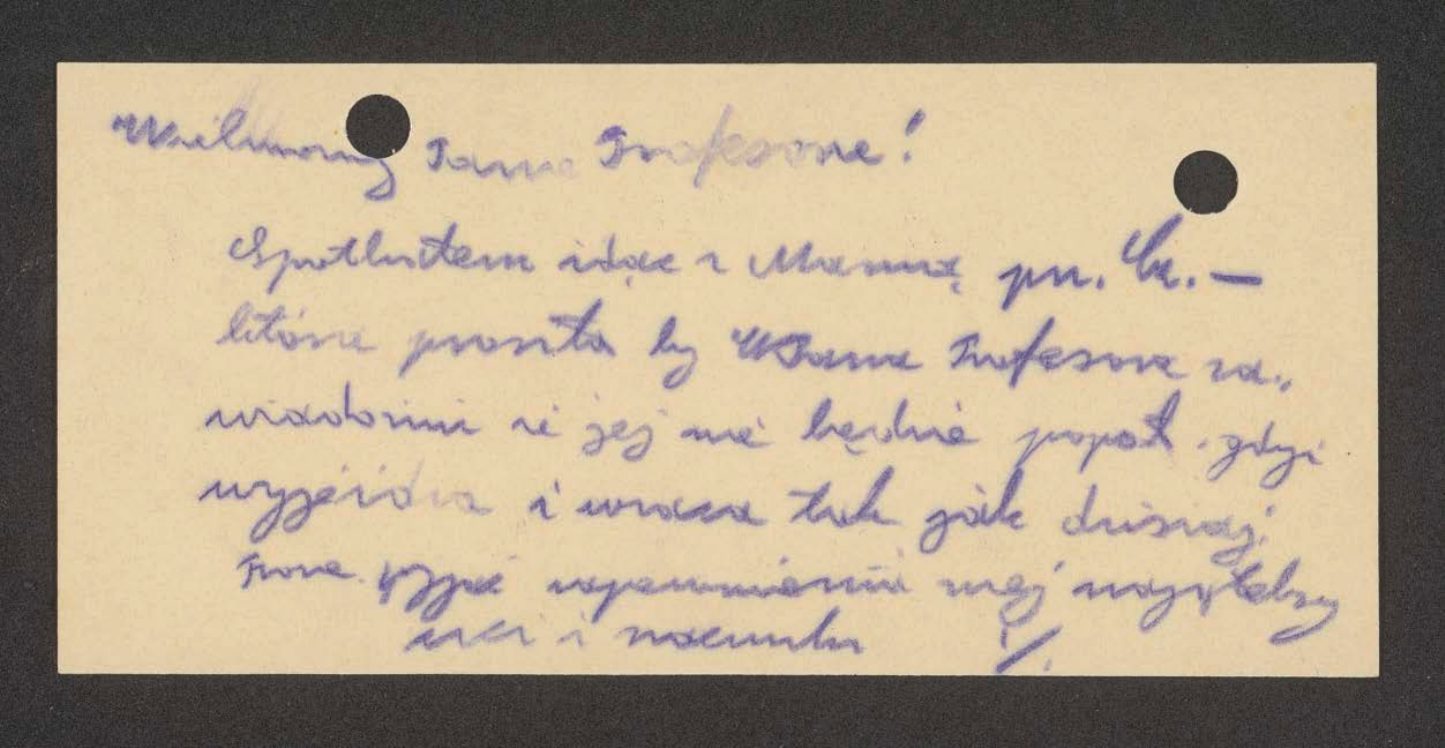 Wielmożny Panie Profesorze!
Spotkałem idąc z Mamą pn. Cz. —
która prosiła by WPana Profesora za„
wiadomić że jej nie będzie popoł. gdyż
wyjeżdża i wraca tak jak dzisiaj.
Proszę przyjąć zapewnienia mej najgłębszej
czci i szacunku